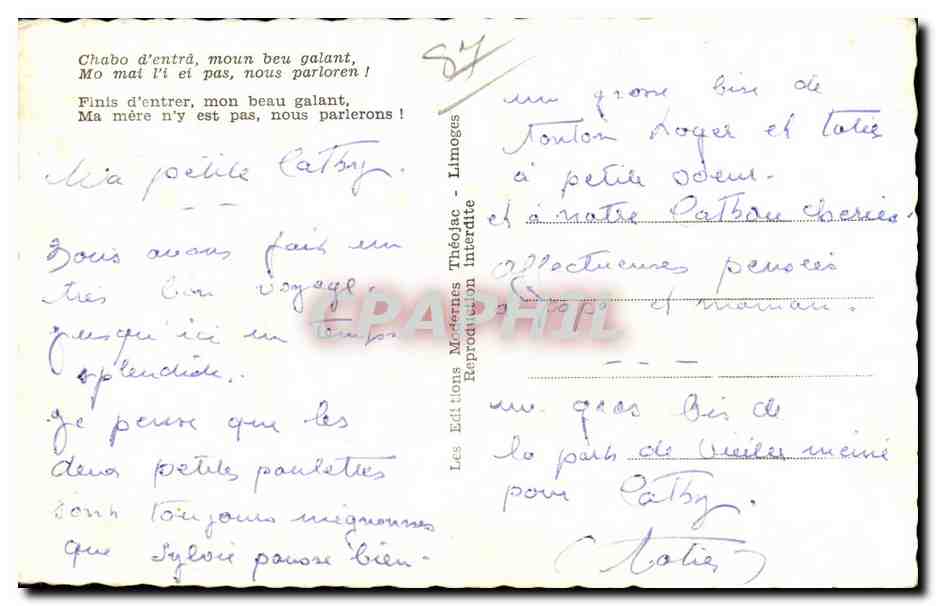 Chabo d'entrâ, moun beu galant,
Mo mai l'i ei pas, nous parloren !
Finis d'entrer, mon beau galant,
Ma mère n'y est pas, nous parlerons !
Ma petite Cathy.
Nous avons fait un
très bon voyage.
jusqu'ici un temps
splendide.
Je pense que les
deux petites poulettes
sont toujours mignonnes
que Sylvie pousse bien.
Les Editions Modernes Théojac - Limoges
Reproduction interdite
87
un grosse bise de
Tonton Roger et Tatie
à petite soeur.
et à notre chérie.
affectueuses pensées
à papa et maman.
un gros bis de
la part de mémé
pour Cathy.
(Tatie)
CPAPHIL